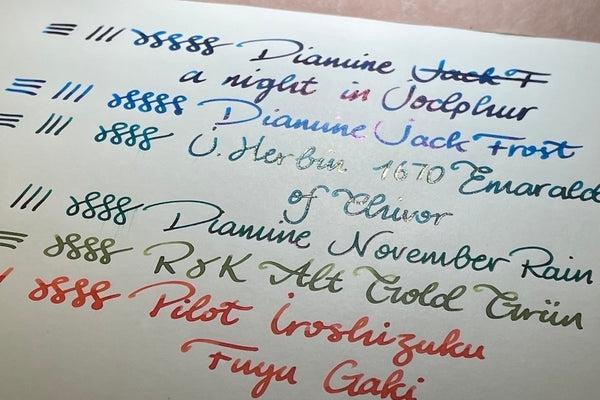 Diamine Jack F
a night in Jodphur
Diamine Jack Frost
J. Herbin 1670 Emarald
of Chivor
Diamine November Rain
R & K Alt Gold Grün
Pilot Iroshizuku
Fuyu Gaki